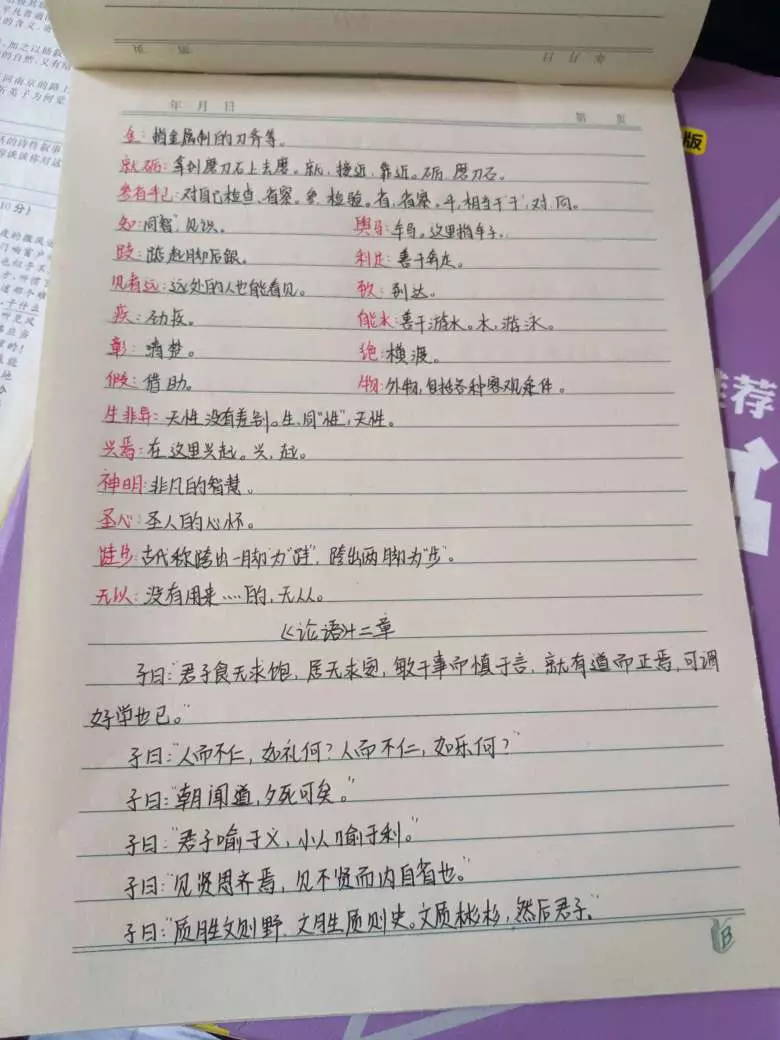 年 月 日 第 页
金：指金属制的刀斧等。
就砺：拿到磨刀石上去磨。就，接近，靠近。砺，磨刀石。
参省乎己：对自己检查、省察。参，检验。省，省察。乎，相当于"于"，对、向。
知：同"智"，见识。 舆马：车马。这里指车子。
跂：踮起脚后跟。 利足：善于奔走。
见者远：远处的人也能看见。 致：到达。
疾：劲疾。 能水：善于游水。水，游泳。
彰：清楚。 绝：横渡。
假：借助。 物：外物，包括各种客观条件。
生非异：天性没有差别。生，同"性"，天性。
兴焉：在这里兴起。兴，起。
神明：非凡的智慧。
圣心：圣人的心怀。
跬步：古代称跨出一脚为"跬"，跨出两脚为"步"。
无以：没有用来……的，无从。
《论语》十二章
子曰："君子食无求饱，居无求安，敏于事而慎于言，就有道而正焉，可谓
好学也已。"
子曰："人而不仁，如礼何？人而不仁，如乐何？"
子曰："朝闻道，夕死可矣。"
子曰："君子喻于义，小人喻于利。"
子曰："见贤思齐焉，见不贤而内自省也。"
子曰："质胜文则野，文胜质则史。文质彬彬，然后君子。"
B
版
推荐